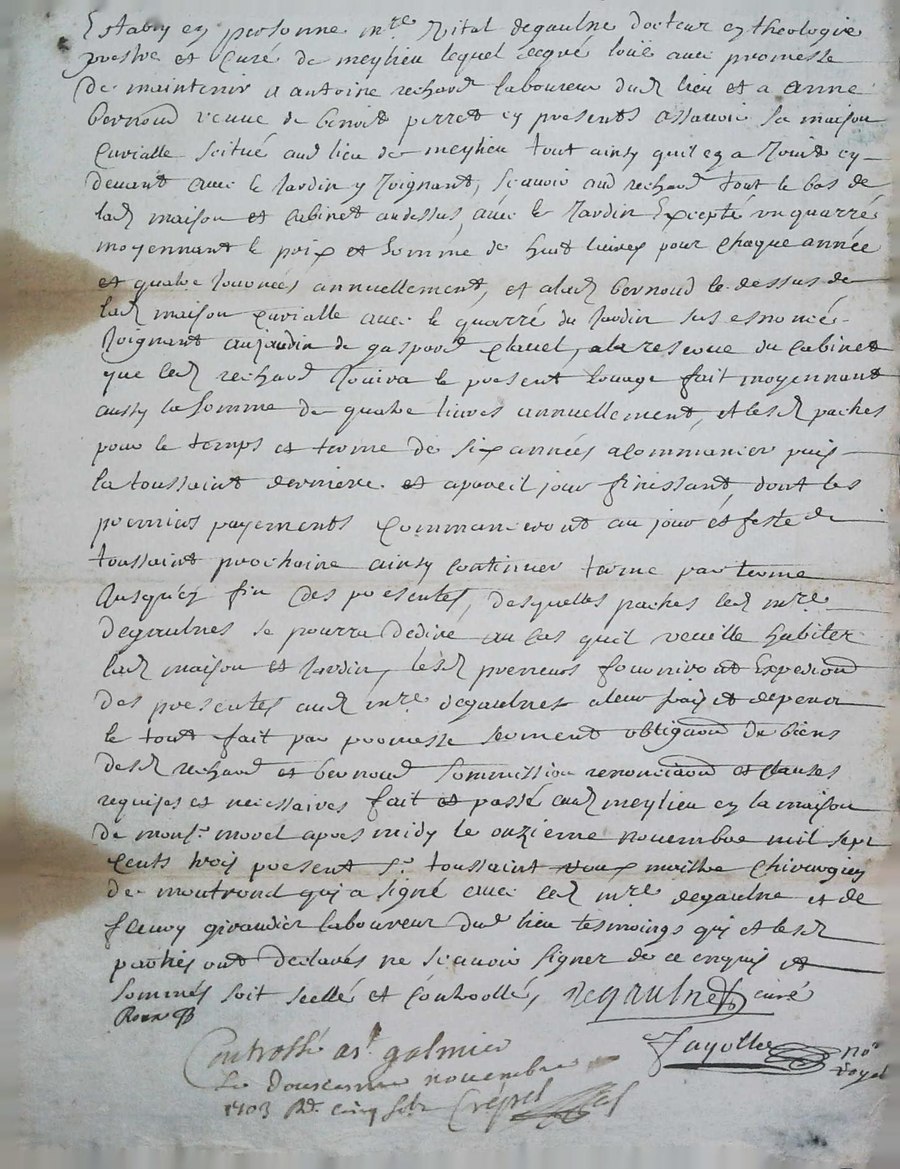 Estably en personne mre Vital degaulne docteur en theologie
prestre et curé de meylieu lequel de gré loue avec promesse
de maintenir a antoine richard laboureur dud lieu et a anne
bernoud veuve de benoit perret cy presents assavoir sa maison
curialle scitué aud lieu de meylieu tout ainsy quil en a Jouit cy
devant avec le Jardin y Joignant, scavoir aud richard tout le bas de
lad maison et cabinet audessus avec le Jardin Excepté un quarré
moyennant le prix et somme de huit livres pour chaque année
et quatre Journées annuellement, et alad bernoud le dessus de
lad maison curialle avec le quarré du Jardin sus esnoncé
Joignant au jardin de gaspard clavel, ala reserve du cabinet
que led richard Jouira le present louage fait moyennant
aussy la somme de quatre livres annuellement, et lesd paches
pour le temps et terme de six années a commancer puis
la toussaint derniere et apareil jour finissant, dont les
premiers payements commanceront au jour et feste de
toussaint prochaine ainsy continuer terme par terme
Jusqu'en fin des presentes, desquelles paches led mre
degaulnes se pourra dedire au cas quil veuille habiter
lad maison et Jardin, lesd preneurs fourniront Expedion
des presentes aud mre degaulnes a leur frais et depens
le tout fait par promesse serment obligaon de biens
desd richard et bernoud sommission renonciaon et clauses
requises et necessaires fait et passé aud meylieu en la maison
de monsr morel apres midy le onzieme novembre mil sept
cents trois present sr toussaint maithre chirurgien
de montrond qui a signé avec led mre degaulne et de
fleury giraudier laboureur dud lieu tesmoings qui et lesd
parties ont declarés ne scavoir signer de ce enquis et
sommés soit scellé et controollé, degaulnes curé
Controllé a st galmier Fayolle nore
Le dousieme novembre royal
1703 Rd. cinq sols Crepet